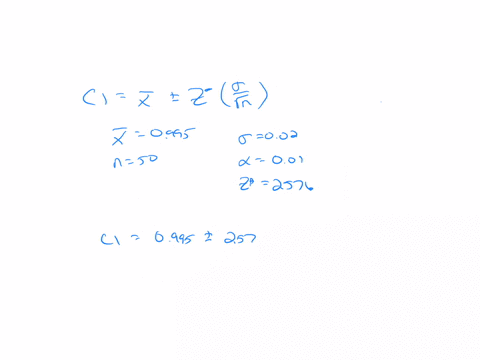 CI = x̄ ± Z* (σ/√n)
x̄ = 0.995
σ = 0.02
n = 50
α = 0.01
Z* = 2.576
CI = 0.995 ± 2.57